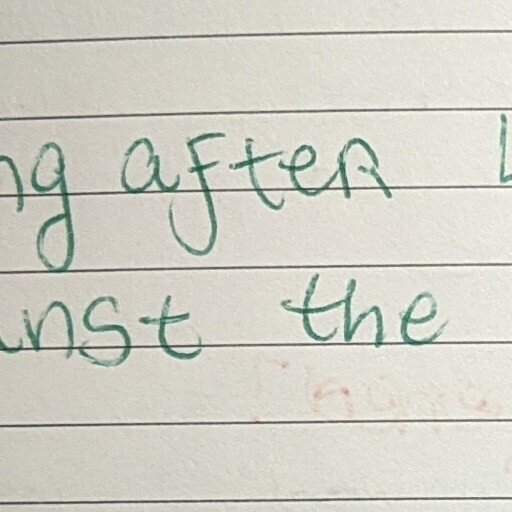 ng after
inst the